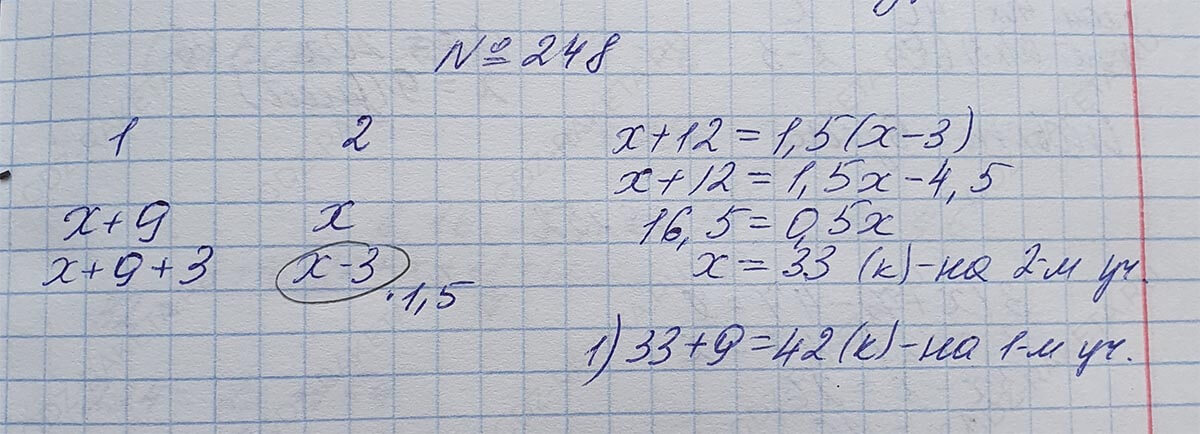 № 248
1 2
x+9 x
x+9+3 x-3 ·1,5
x+12=1,5(x-3)
x+12=1,5x-4,5
16,5=0,5x
x=33 (к)-на 2-м уч.
1) 33+9=42(к)-на 1-м уч.